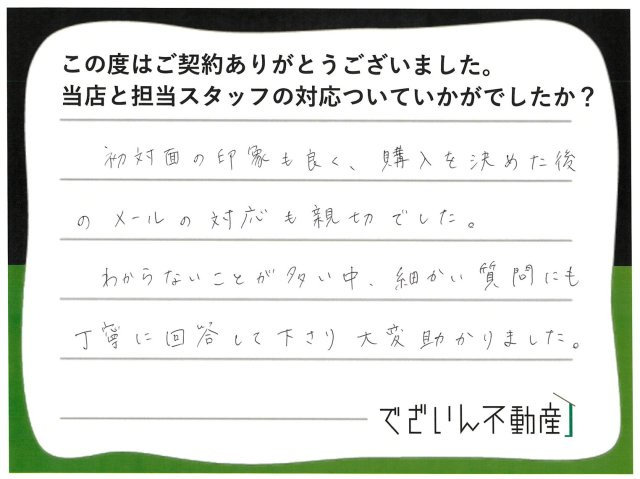 この度はご契約ありがとうございました。
当店と担当スタッフの対応ついていかがでしたか？
初対面の印象も良く、購入を決めた後
のメールの対応も親切でした。
わからないことが多い中、細かい質問にも
丁寧に回答して下さり大変助かりました。
でざいん不動産